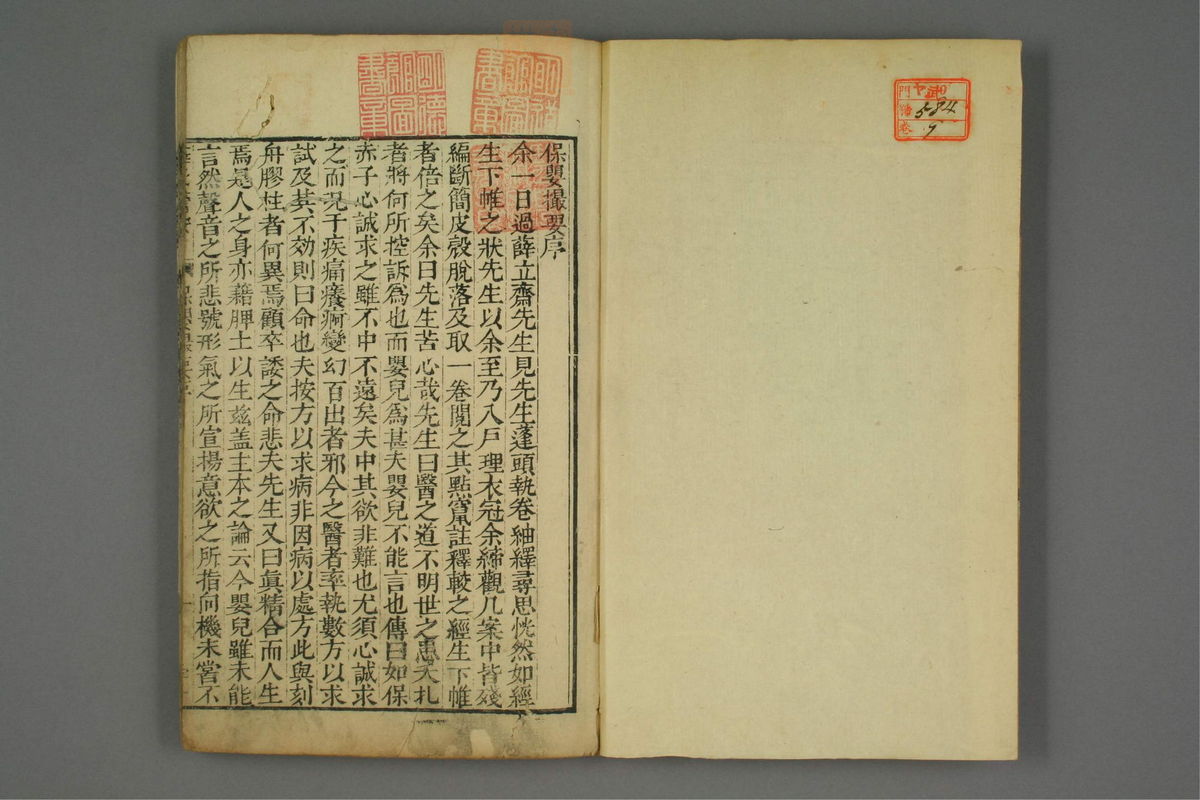 保嬰撮要序
余一日過薛立齋先生見先生蓬頭執卷紬繹尋思恍然如經
生下帷之狀先生以余至乃入戶理衣冠余締觀几案中皆殘
編斷簡皮殼脫落及取一卷閱之其點竄註釋較之經生下帷
者倍之矣余曰先生苦心哉先生曰醫之道不明世之患夭札
者將何所控訴爲也而嬰兒爲甚夫嬰兒不能言也傳曰如保
赤子心誠求之雖不中不遠矣夫中其欲非難也尤須心誠求
之而見于疾痛癢痾變幻百出者邪今之醫者率執數方以求
試及其不効則曰命也夫按方以求病非因病以處方此與刻
舟膠柱者何異焉顧卒諉之命悲夫先生又曰眞精合而人生
焉是人之身亦藉脾土以生茲盖主本之論云今嬰兒雖未能
言然聲音之所悲號形氣之所宣揚意欲之所指向機未嘗不
門
584
卷
7